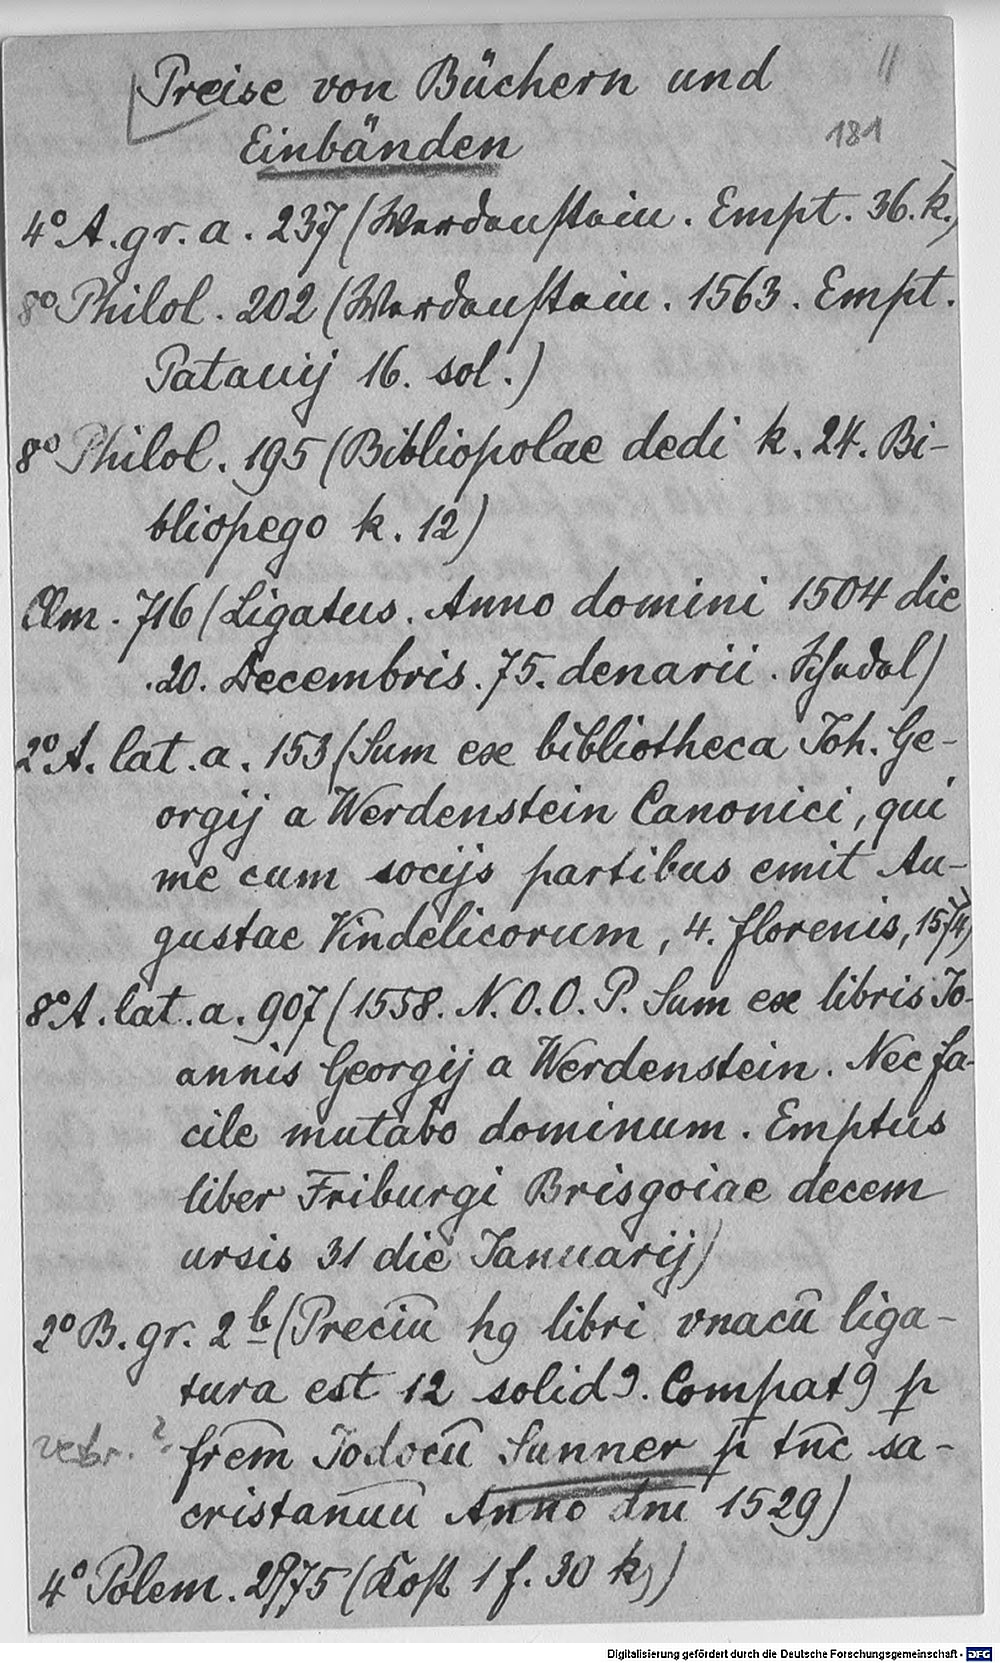 Preise von Büchern und
11
Einbänden
181
4° A. gr. a. 237 (Werdenstein. Empt. 36. k.)
8° Philol. 202 (Werdenstein. 1563. Empt.
Patauij 16. sol.)
8° Philol. 195 (Bibliopolae dedi k. 24. Bi-
bliopego k. 12)
Clm. 716 (Ligatus. Anno domini 1504 die
.20. Decembris. 75. denarii. Schedel)
2° A. lat. a. 153 (Sum ex bibliotheca Joh. Ge-
orgij a Werdenstein Canonici, qui
me cum socijs partibus emit Au-
gustae Vindelicorum, 4. florenis, 1574)
8° A. lat. a. 907 (1558. N. O. O. P. Sum ex libris Jo-
annis Georgij a Werdenstein. Nec fa-
cile mutabo dominum. Emptus
liber Friburgi Brisgoiae decem
ursis 31 die Januarij)
2° B. gr. 2b (Preciū hꝯ libri vnacū liga-
tura est 12 solidꝯ. Compatꝯ ꝑ
frēm Jodocū Sunner ꝑ tūc sa-
cristanūū Anno dnī 1529)
4° Polem. 2975 (Kost 1 f. 30 k)
Digitalisierung gefördert durch die Deutsche Forschungsgemeinschaft - DFG